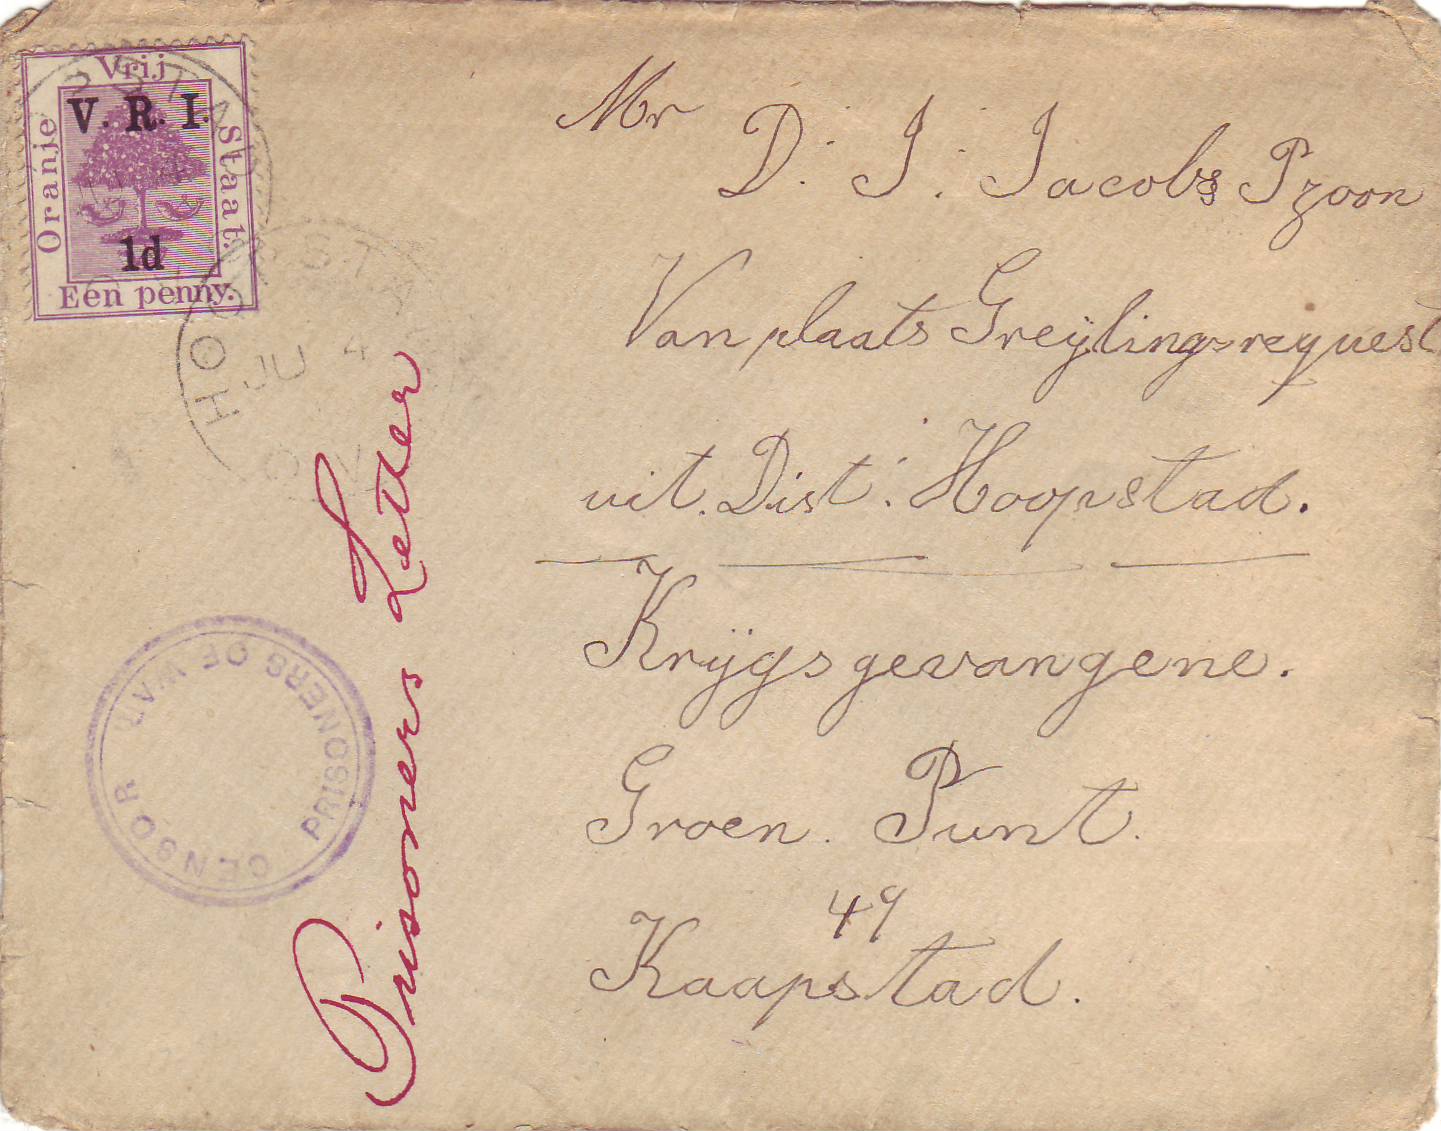 Vrij
V. R. I.
Oranje
Staat.
1d
Een penny.
HOOPSTA
JU 4
Mr
D. J. Jacobs Pzoon
Van plaats Greijlingsrequest
uit. Dist. Hoopstad.
Krijgsgevangene.
Groen. Punt.
49
Kaapstad.
Prisoners Letter
CENSOR
PRISONERS OF WAR